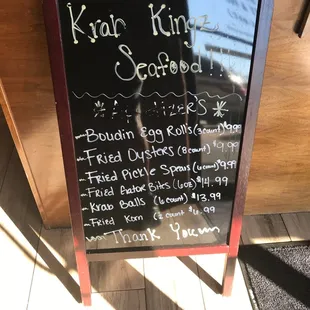 Krab Kingz
Seafood!!!
Appetizers
Boudin Egg Rolls (3 count) $9.99
Fried Oysters (8 count) $9.99
Fried Pickle Spears (6 count) $9.99
Fried Gator Bites (6oz) $14.99
Krab Balls (6 count) $13.99
Fried Korn
Thank You